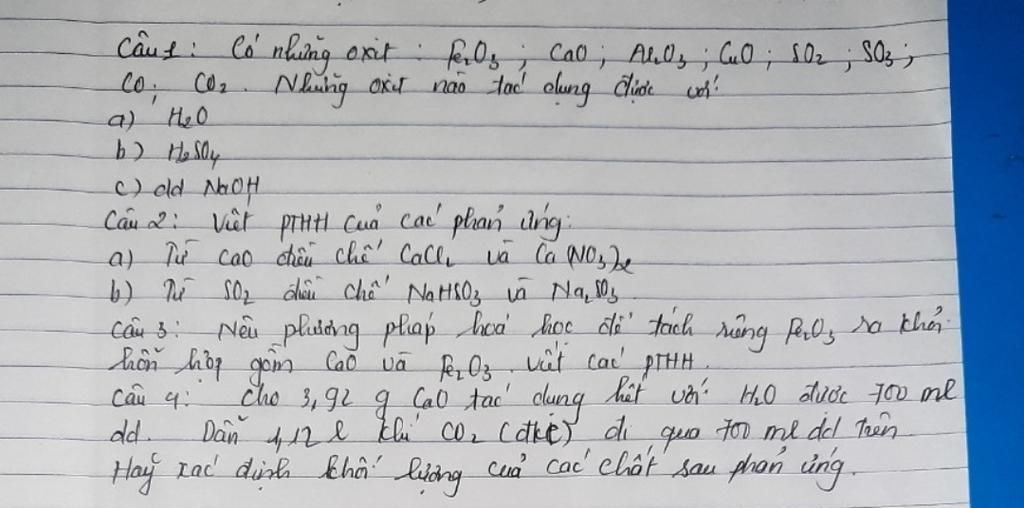 Câu 1: Có những oxit: Fe2O3; CaO; Al2O3; CuO; SO2; SO3;
CO; CO2. Những oxit nào tác dụng được với:
a) H2O
b) H2SO4
c) dd NaOH
Câu 2: Viết PTHH của các phản ứng:
a) Từ CaO điều chế CaCl2 và Ca(NO3)2
b) Từ SO2 điều chế NaHSO3 và Na2SO3
Câu 3: Nêu phương pháp hoá học để tách riêng Fe2O3 ra khỏi
hỗn hợp gồm CaO và Fe2O3. Viết các PTHH.
Câu 4: Cho 3,92 g CaO tác dụng hết với H2O được 700 ml
dd. Dẫn 1,12 l khí CO2 (đktc) đi qua 700 ml dd trên
Hãy xác định khối lượng của các chất sau phản ứng.